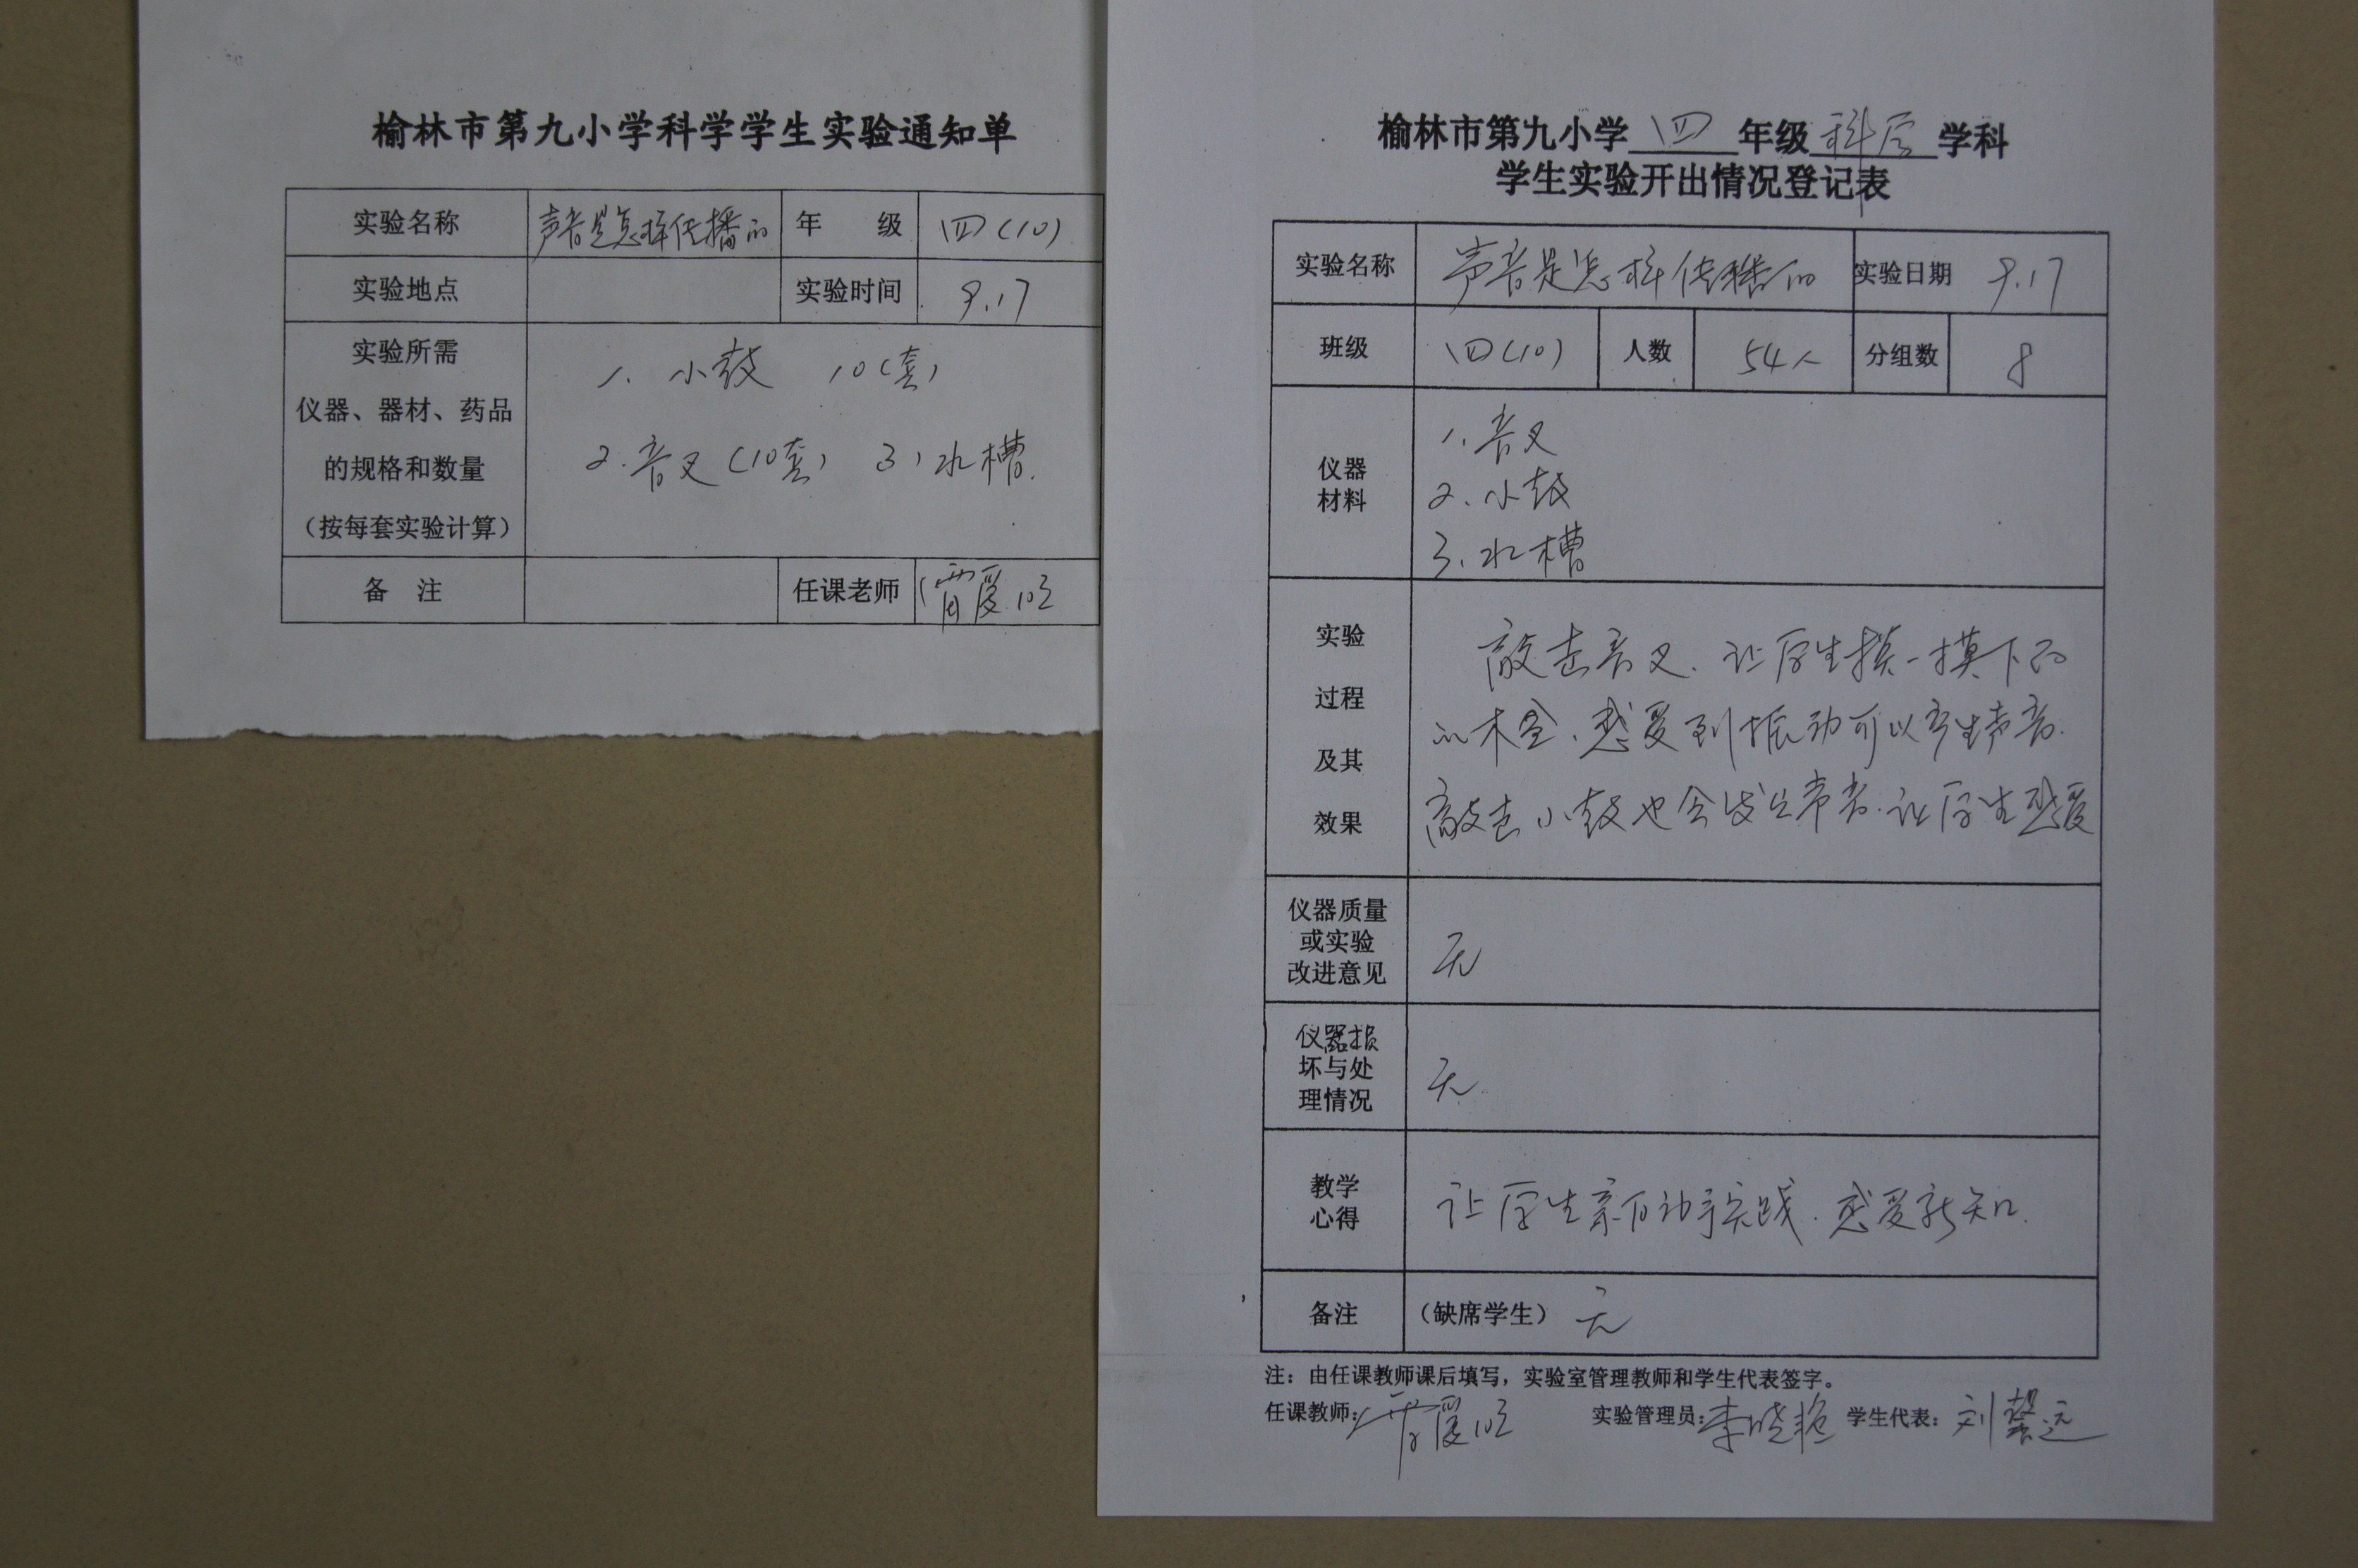 榆林市第九小学科学学生实验通知单
实验名称 声音是怎样传播的 年 级 四(10)
实验地点 实验时间 9.17
实验所需
仪器、器材、药品
的规格和数量
(按每套实验计算)
1. 小鼓 10(套)
2. 音叉(10套) 3. 水槽.
备 注 任课老师
榆林市第九小学 四 年级 科学 学科
学生实验开出情况登记表
实验名称 声音是怎样传播的 实验日期 9.17
班级 四(10) 人数 54人 分组数 8
仪器
材料
1. 音叉
2. 小鼓
3. 水槽
实验
过程
及其
效果
敲击音叉、让学生摸一摸下面
的木盒、感受到振动可以产生声音.
敲击小鼓也会发出声音.让学生感受
仪器质量
或实验
改进意见
无
仪器损
坏与处
理情况
无.
教学
心得
让学生亲自动手实践.感受新知.
备注 (缺席学生) 无
注：由任课教师课后填写，实验室管理教师和学生代表签字。
任课教师： 实验管理员：李晓艳 学生代表：刘馨远